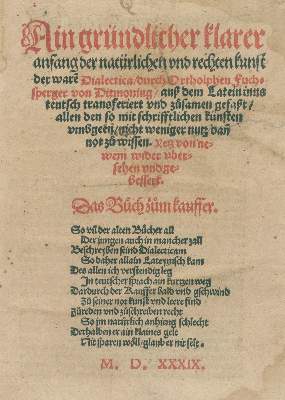 Ain gründlicher klarer
anfang der natürlichen vnd rechten kunst
der warē Dialectica / durch Ortholphen Fuchs-
sperger von Ditmoning / auß dem Latein inns
teutsch transferiert vnd zůsamen gefaßt /
allen den so mit schrifftlichen künsten
vmbgeen / nicht weniger nutz dañ
not zů wissen. Yetz von ne-
wem wider vber-
sehen vnd ge-
bessert.
Das Bůch zům kauffer.
So vil der alten Bücher all
Der jungen auch in mancher zall
Beschreyben seind Dialecticam
So daher allain Lateynisch kam
Des allen ich verstendig leg
In teutscher sprach ain kurtzen weg
Dardurch der Kauffer bald vnd gschwind
Zů seiner not kunst vnd leere find
Zůreden vnd zůschreiben recht
So jm natürlich anhieng schlecht
Derhalben er ain klaines gelt
Nit sparen wöll / glaub er mir selt.
M. D. XXXIX.